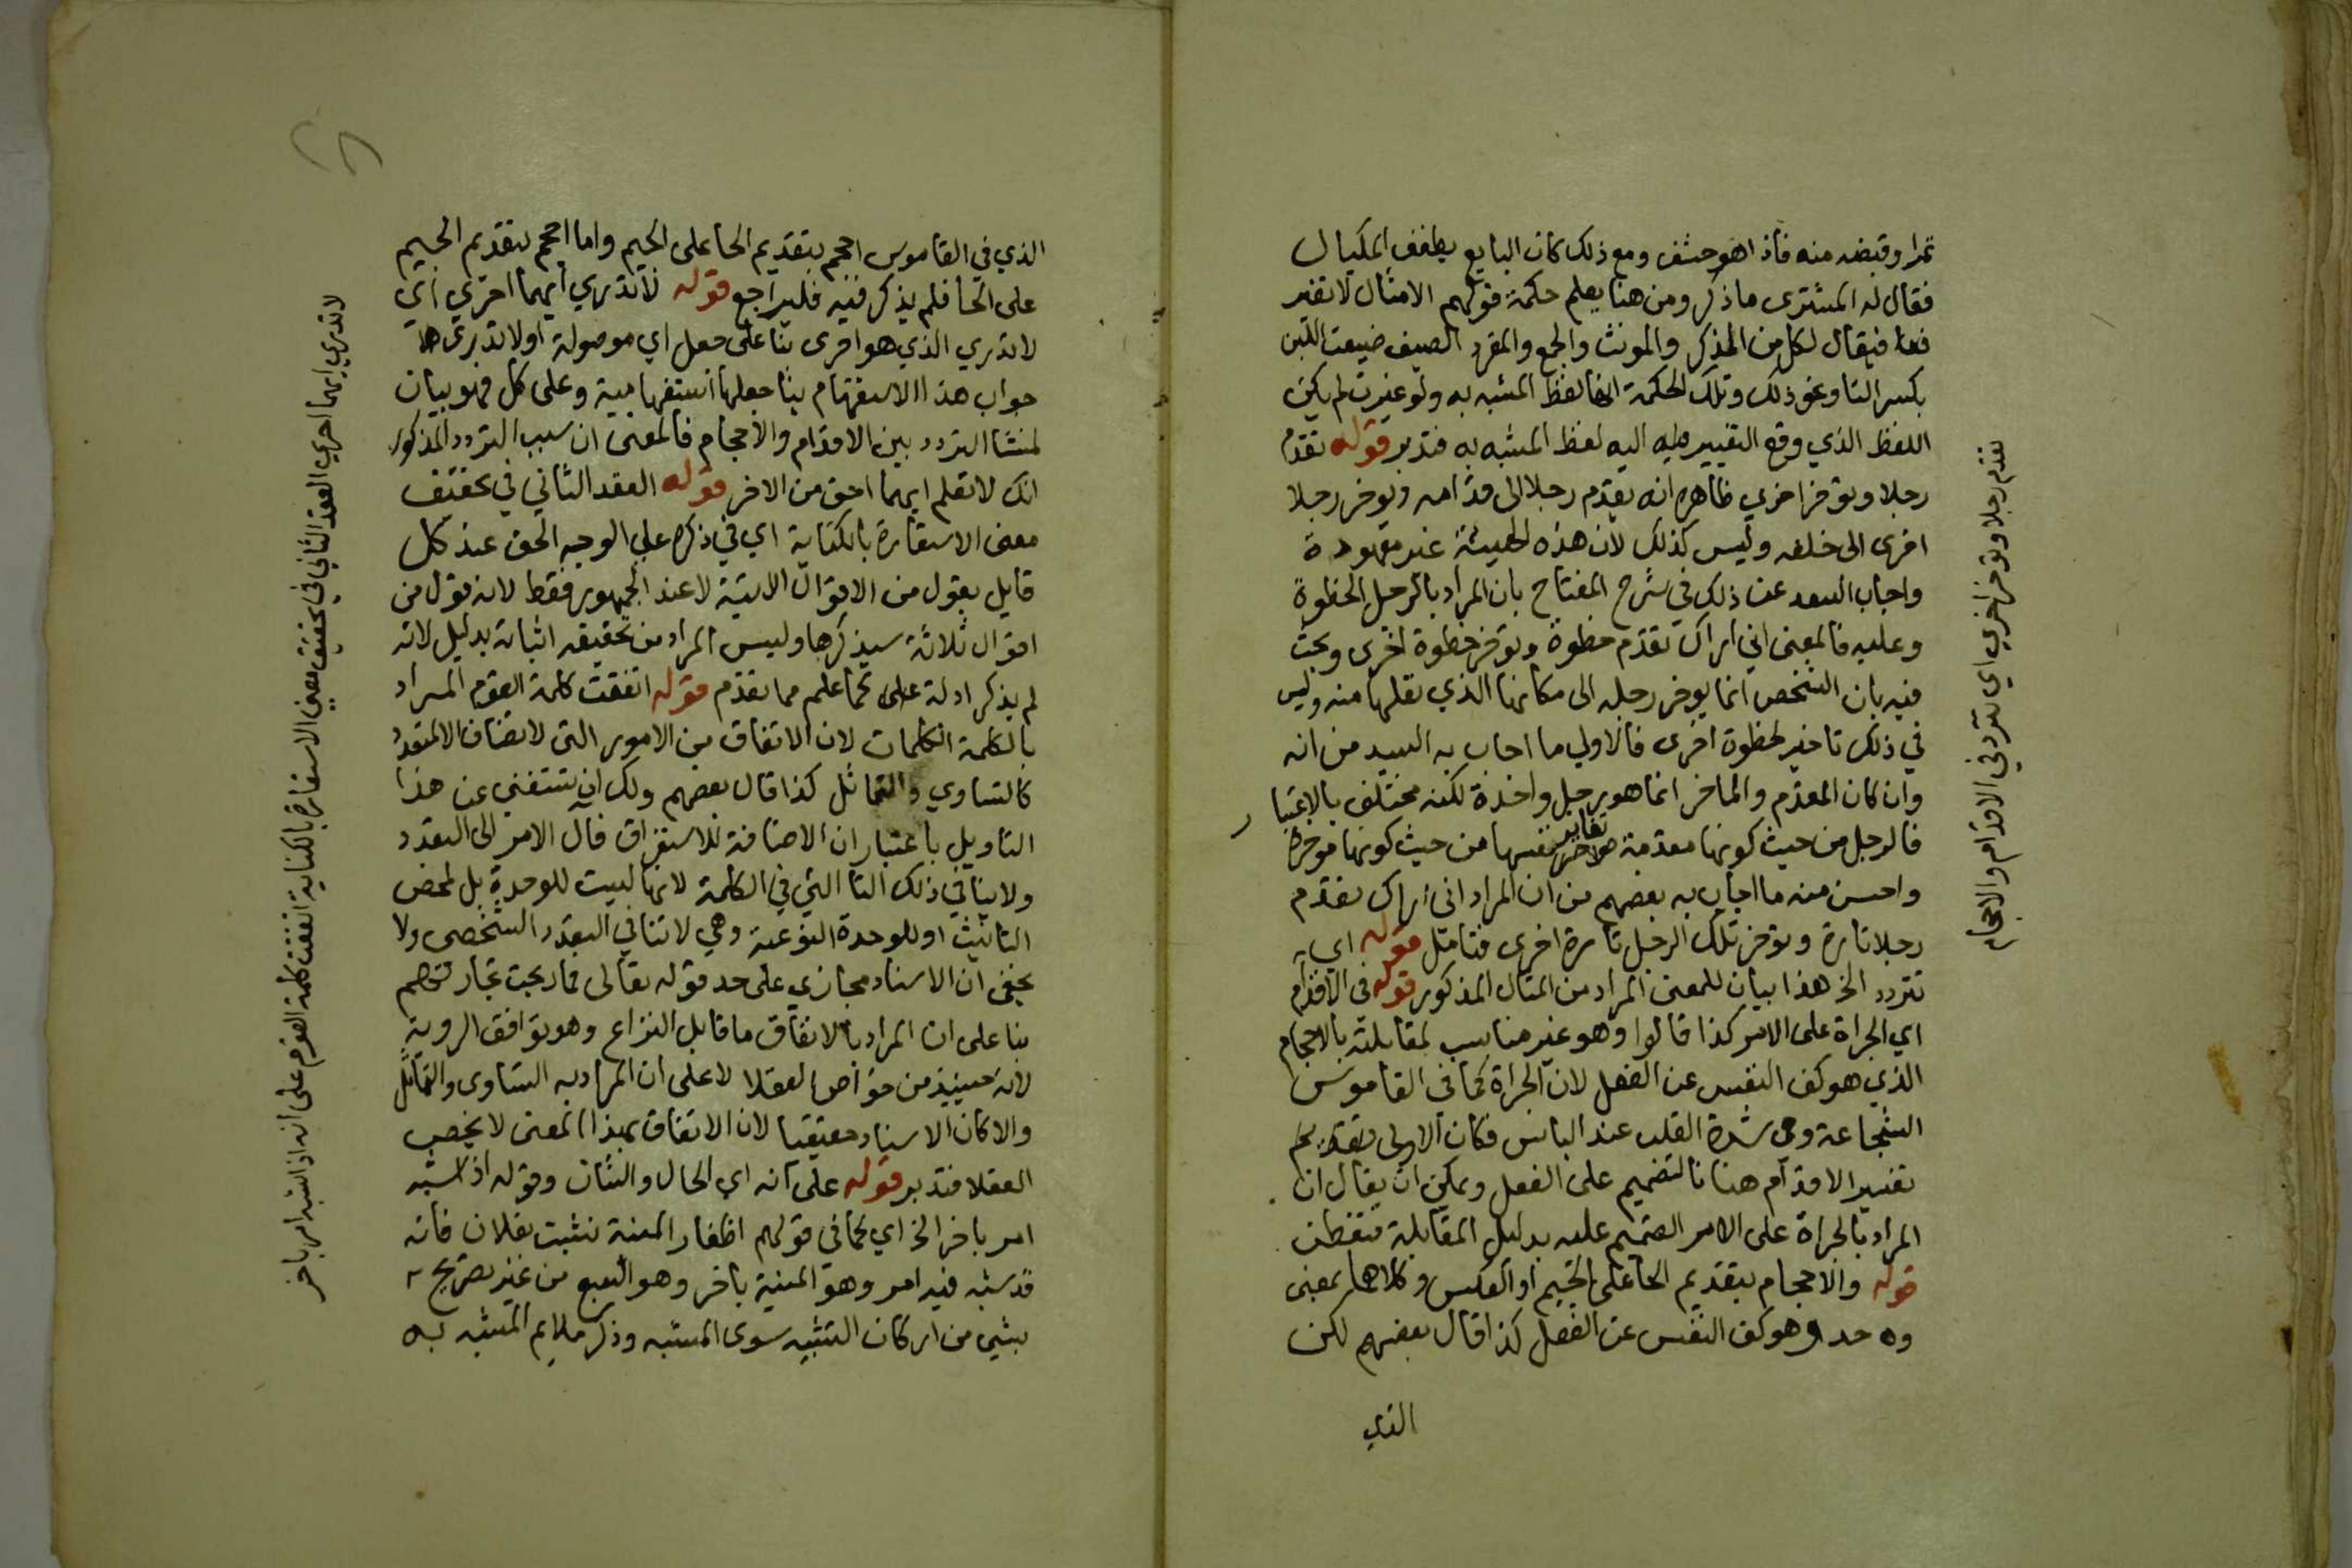 تمرا وقبضه منه فاذا هو حشف ومع ذلك كان البايع يطفف المكيال
فقال له المشترى ما ذكر ومن هنا يعلم حكمة قولهم الامثال لا تغير
فيقال لكل من المذكر والمونث والجمع والمفرد الصيف ضيعت اللبن
بكسر التا ونحو ذلك وتلك الحكمة انها لفظ المشبه به ولو غيرت لم يكن
اللفظ الذي وقع التغيير اليه لفظ المشبه به فتدبر قوله تقدم
رجلا وتوخر اخري ظاهره انه يقدم رجلا الى قدامه ويوخر رجلا
اخرى الى خلفه وليس كذلك لان هذه الهيئة غير معهودة
واجاب السعد عن ذلك في شرح المفتاح بان المراد بالرجل الخطوة
وعليه فالمعنى اني اراك تقدم خطوة وتوخر خطوة اخرى وبحث
فيه بان الشخص انما يوخر رجله الى مكانها الذي نقلها منه وليس
في ذلك تاخير لخطوة اخرى فالاولي ما اجاب به السيد من انه
وان كان المقدم والماخر انما هو رجل واحدة لكنه مختلف بالاعتبار
فالرجل من حيث كونها مقدمة تغاير نفسها من حيث كونها موخرة
واحسن منه ما اجاب به بعضهم من ان المراد اني اراك تقدم
رجلا تارة وتوخر تلك الرجل تارة اخرى فتامل قوله اي
تتردد الخ هذا بيان للمعنى المراد من المثال المذكور قوله في الاقدام
اي الجراة على الامر كذا قالوا وهو غير مناسب لمقابلته بالاحجام
الذي هو كف النفس عن الفعل لان الجراة كما في القاموس
الشجاعة وهي شدة القلب عند الباس فكان الاولى
تفسير الاقدام هنا بالتصميم على الفعل ويمكن ان يقال ان
المراد بالجراة على الامر التصميم عليه بدليل المقابلة فتفطن
قوله والاحجام بتقديم الحا على الجيم او العكس وكلاهما بمعنى
واحد وهو كف النفس عن الفعل كذا قال بعضهم لكن
الذي
تقدم رجلا وتوخر اخري اي تتردد في الاقدام والاحجام
الذي في القاموس احجم بتقديم الحا على الجيم واما اجحم بتقديم الجيم
على الحا فلم يذكر فيه فليراجع قوله لا تدري ايهما احري اي
لا تدري الذي هو احرى بنا على جعل اي موصولة او لا تدري
جواب هذا الاستفهام بنا جعلها استفهامية وعلى كل فهو بيان
لمنشا التردد بين الاقدام والاحجام فالمعنى ان سبب التردد المذكور
انك لا تعلم ايهما احق من الاخر قوله العقد الثاني في تحقيق
معنى الاستعارة بالكناية اي في ذكره علي الوجه الحق عند كل
قايل بقول من الاقوال الاتية لا عند الجمهور فقط لانه قول من
اقوال ثلاثة سيذكرها وليس المراد من تحقيقه اثباته بدليل لانه
لم يذكر ادلة على كما علم مما تقدم قوله اتفقت كلمة القوم المراد
بالكلمة الكلمات لان الاتفاق من الامور التى لا تضاف الا لمتعدد
كالتساوي والتماثل كذا قال بعضهم ولك ان تستغنى عن هذا
التاويل باعتبار ان الاضافة للاستغراق فال الامر الى التعدد
ولا ينافي ذلك التا التي في الكلمة لانها ليست للوحدة بل لمحض
التانيث او للوحدة النوعية وهي لا تنافي التعدد الشخصى ولا
يخفى ان الاسناد مجازي على حد قوله تعالى فما ربحت تجارتهم
بنا على ان المراد بالاتفاق ما قابل النزاع وهو توافق الروية
لانه حينيذ من خواص العقلا لا على ان المراد به التساوى والتماثل
والا كان الاسناد حقيقيا لان الاتفاق بهذا المعنى لا يخص
العقلا فتدبر قوله على انه اي الحال والشان وقوله اذا شبه
امر باخر الخ اي كما في قولهم اظفار المنية نشبت بفلان فانه
قد شبه فيه امر وهو المنية باخر وهو السبع من غير تصريح
بشي من اركان التشبيه سوى المشبه وذكر ملايم المشبه به
لا تدري ايهما احري العقد الثاني في تحقيق معنى الاستعارة بالكناية اتفقت كلمة القوم على انه اذا شبه امر باخر